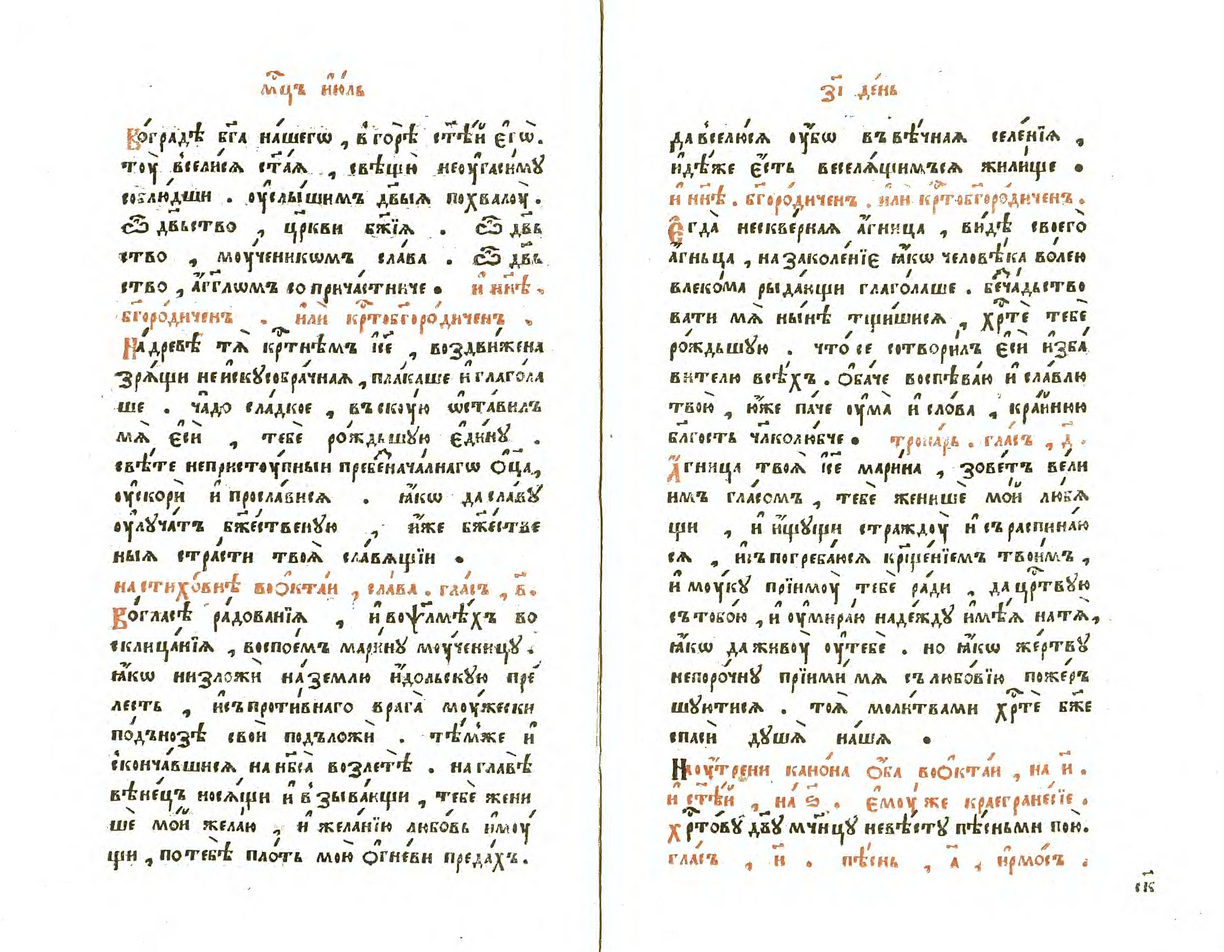 мⷭ҇цъ ию́ль
Во́градѣ бг҃а на́шегѡ , в го́рѣ ст҃ѣ́й єгѡ̀.
тоу̀ всели́сѧ ст҃а́ѧ , свѣщꙋ̀ неоуга́симꙋ
соблю́дши . оуслы́шимъ дв҃ыѧ похвалоу̀.
Ѽ дв҃ьство , цр҃кви бж҃їѧ . Ѽ дв҃ь
ство , моу́ченикѡмъ сла́ва . Ѽ дв҃ь
ство , а҆́гг҃лѡмъ со прича́стниче . и҆ ны́нѣ .
бг҃оро́диченъ . и҆лѝ крⷭ҇тобг҃оро́диченъ .
На́древѣ тѧ̀ крⷭ҇тнѣмъ і҆с҃е , воздви́жена
зрѧ́щи неискꙋсобра́чнаѧ , пла́каше и҆ глаго́ла
ше . ча́до сла́дкое , въскꙋ́ю ѡ҆ста́вилъ
мѧ̀ є҆сѝ , тебѐ ро́ждьшꙋю є҆ди́нꙋ .
свѣ́те непристоу́пныи пребезнача́лнагѡ ѻ҆ц҃а̀,
оу҆скорѝ и҆ просла́висѧ . ꙗ҆́кѡ да сла́вꙋ
оу҆лꙋча́тъ бж҃е́ственꙋю , и҆́же бж҃е́стве
ныѧ стра́сти твоѧ̀ сла́вѧщїи .
на стихо́внѣ во ѻ҆кта́и , сла́ва . гла́съ , в҃.
Во́гласѣ ра́дованїѧ , и҆ во ѱалмѣ́хъ во
склица́нїѧ , воспои́мъ мари́нꙋ моу́ченицꙋ .
ꙗ҆́кѡ низложѝ на́землю и҆́дольскꙋю пре́
лесть , и҆съпроти́внаго врага̀ моу́жески
подъно́зѣ своѝ подъложѝ . тѣ́мже и҆
скончавшисѧ на нб҃са̀ возлетѣ̀ . на главѣ̀
вѣне́цъ носѧ́щи и҆ взыва́ющи , тебѐ жени
шѐ мо́й жела́ю , и҆ жела́нїю любо́вь и҆моу́
щи , по тебѣ̀ пло́ть мою̀ ѻ҆гне́ви преда́хъ .
з҃і де́нь
да вселю́сѧ оу҆́бѡ въ вѣ́чнаѧ селе́нїѧ ,
и҆дѣ́же є҆́сть веселѧ́щимъсѧ жили́ще .
и҆ ны́нѣ . бг҃оро́диченъ . и҆лѝ крⷭ҇тобг҃оро́диченъ .
Є҆гда̀ нескве́рнаѧ а҆́гница , ви́дѣ своего̀
а҆́гньца , на заколе́нїе ꙗ҆́кѡ человѣ́ка во́лею
влеко́ма рыда́ющи глаго́лаше . безча́дьство
вати мѧ̀ ны́нѣ тщи́шисѧ , хрⷭ҇тѐ тебѐ
ро́ждьшꙋю . что́ се сотвори́лъ є҆сѝ и҆зба
вителю всѣ́хъ . ѻ҆ба́че воспѣва́ю и҆ сла́влю
твою̀ , ю҆́же па́че оу҆ма̀ и҆ сло́ва , кра́йнюю
бл҃гость чл҃колю́бче . тропа́рь . гла́съ , д҃ .
А҆́гница твоѧ̀ і҆с҃е мари́на , зове́тъ ве́ли
имъ гла́сомъ , тебѐ женишѐ мо́й люблѧ̀
щи , и҆ и҆щꙋ́щи стра́ждоу и҆ съраспина́ю
сѧ , и҆ съпогреба́юсѧ крⷭ҇ще́нїемъ твои́мъ ,
и҆ моу́кꙋ прїимоу̀ тебѐ ра́ди , да црⷭ҇твꙋю
съ тобо́ю , и҆ оу҆мира́ю наде́ждꙋ и҆мѣ́ѧ на тѧ̀,
ꙗ҆́кѡ да живоу̀ оу҆ тебѐ . но ꙗ҆́кѡ же́ртвꙋ
непоро́чнꙋ прїими́ мѧ съ любо́вїю поже́ръ
шꙋютисѧ . тоѧ̀ моли́твами хрⷭ҇тѐ бж҃е
спасѝ дꙋ́шѧ на́шѧ .
На оу́трени кано́на ѻ҆́ба во ѻ҆кта́и , на и҃ .
и҆ ст҃ѣ́й , на ѕ҃ . є҆моу́же краегране́сїе .
хрⷭ҇то́вꙋ дв҃ꙋ мч҃ницꙋ невѣ́стꙋ пѣ́сньми пою̀.
гла́съ , и҃ . пѣ́снь , а҃ , и҆рмо́съ .
ск҃